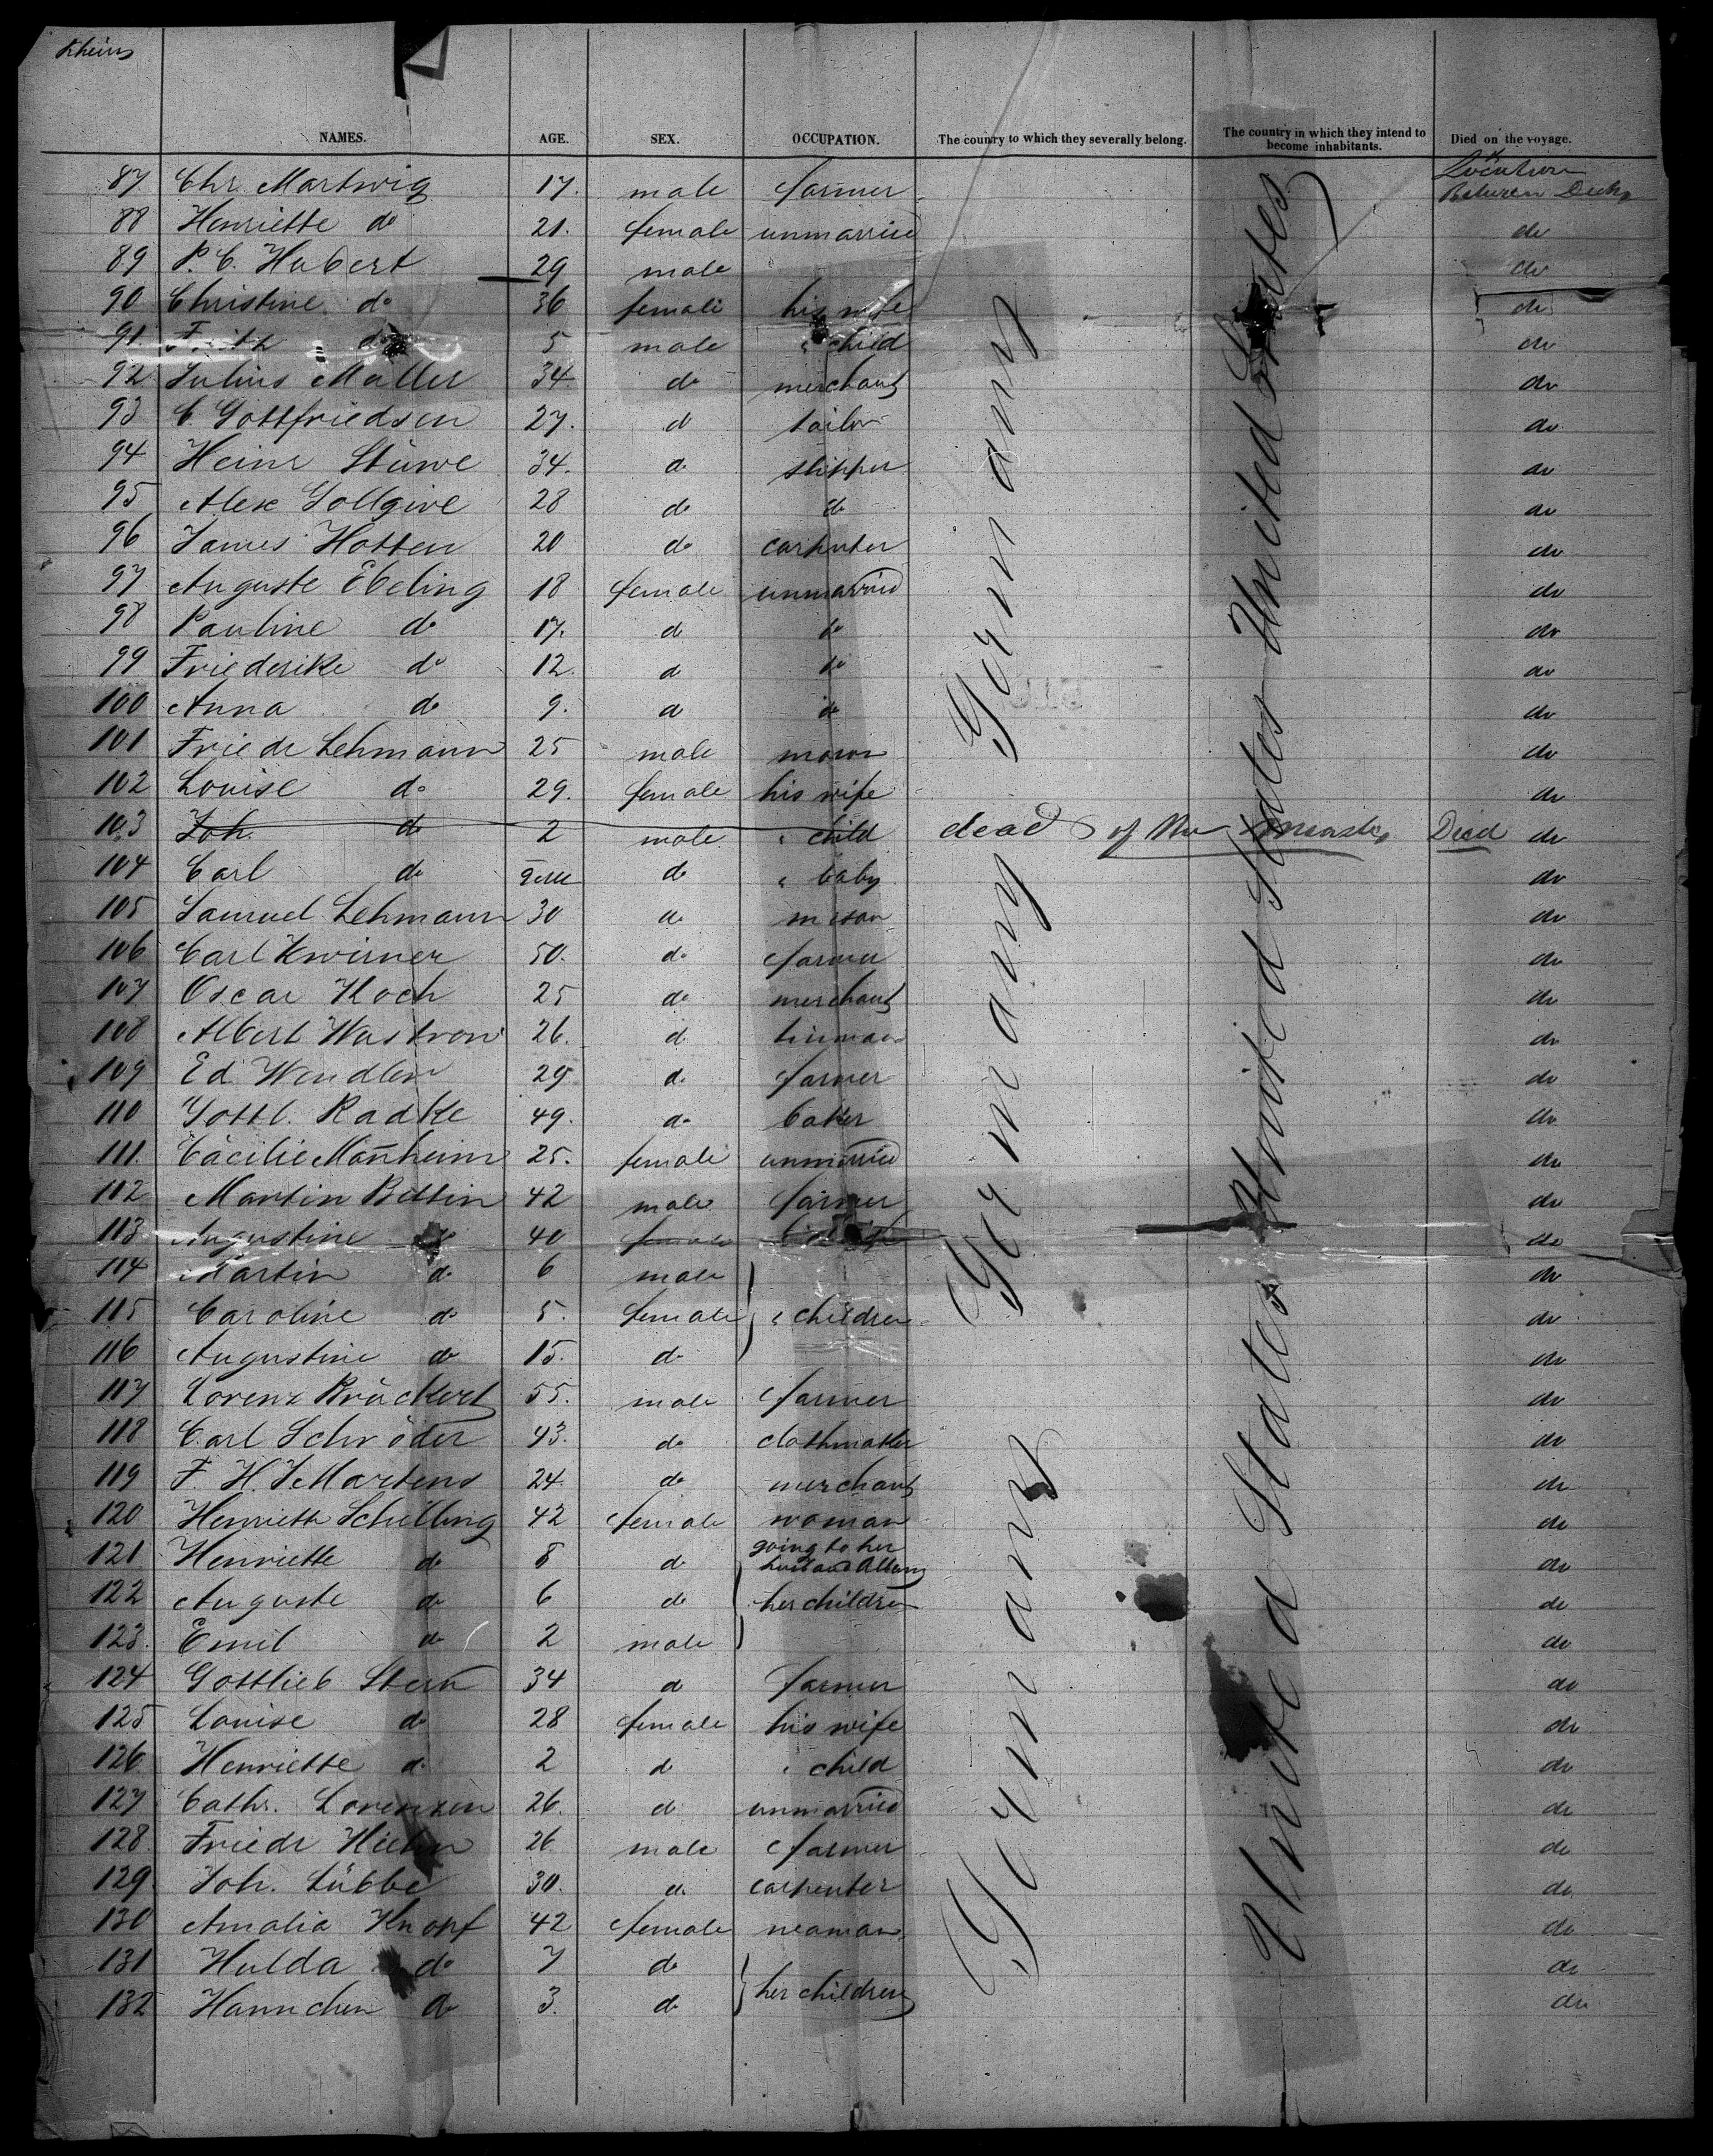 Rheins
NAMES. AGE. SEX. OCCUPATION. The country to which they severally belong. The country in which they intend to become inhabitants. Died on the voyage.
Location
Between Decks
87 Chr Martwig 17. male farmer
88 Henriette do 21. female unmarried do
89 P. C. Hubert 29 male do
90 Christine do 36 female his wife do
91 Fritz do 5 male " child do
92 Julius Möller 34 do merchant do
93 C Gottfriedsen 27. d tailor do
94 Heinr Stüwe 34. d. skipper do
95 Alex Gollgive 28 do do do
96 James Hotten 20 do carpenter do
97 Auguste Ebeling 18 female unmarried do
98 Pauline do 17. d do do
99 Friederike do 12. d do do
100 Anna do 9. d do do
101 Friedr Lehmann 25 male mason do
102 Louise do 29. female his wife do
103 Joh. do 2 male " child dead of the measles Died do
104 Carl do do " baby do
105 Samuel Lehmann 30 do mason do
106 Carl Kwirner 50. do farmer do
107 Oscar Koch 25 do merchant do
108 Albert Wustron 26. d tinman do
109 Ed Wendler 29 d. farmer do
110 Gottl. Radke 49. do baker do
111. Cäcilie Man̄heim 25. female unmarried do
112 Martin Bettin 42 male farmer do
113 Augustine do 40 female his wife do
114 Martin do 6 male do
115 Caroline do 5. female " children do
116 Augustine do 15. do do
117 Lorenz Brückert 55. male farmer do
118 Carl Schröder 43. do clothmaker do
119 F. H. J Martens 24 do merchant do
120 Henriette Schilling 42 female woman do
121 Henriette do 8 do going to her husband Albany do
122 Auguste do 6 do her children do
123. Emil do 2 male do
124 Gottlieb Stern 34 d farmer do
125 Louise do 28 female his wife do
126 Henriette do 2 d " child do
127 Cathr. Lorenzen 26. d unmarried do
128. Friedr Hiehn 26 male farmer do
129 Joh. Lübbe 30. d. carpenter do
130 Amalia Knopf 42 female woman do
131 Hulda do 7 do do
132 Hannchen do 3. do her children do
Germany Germany Germany
United States United States United States